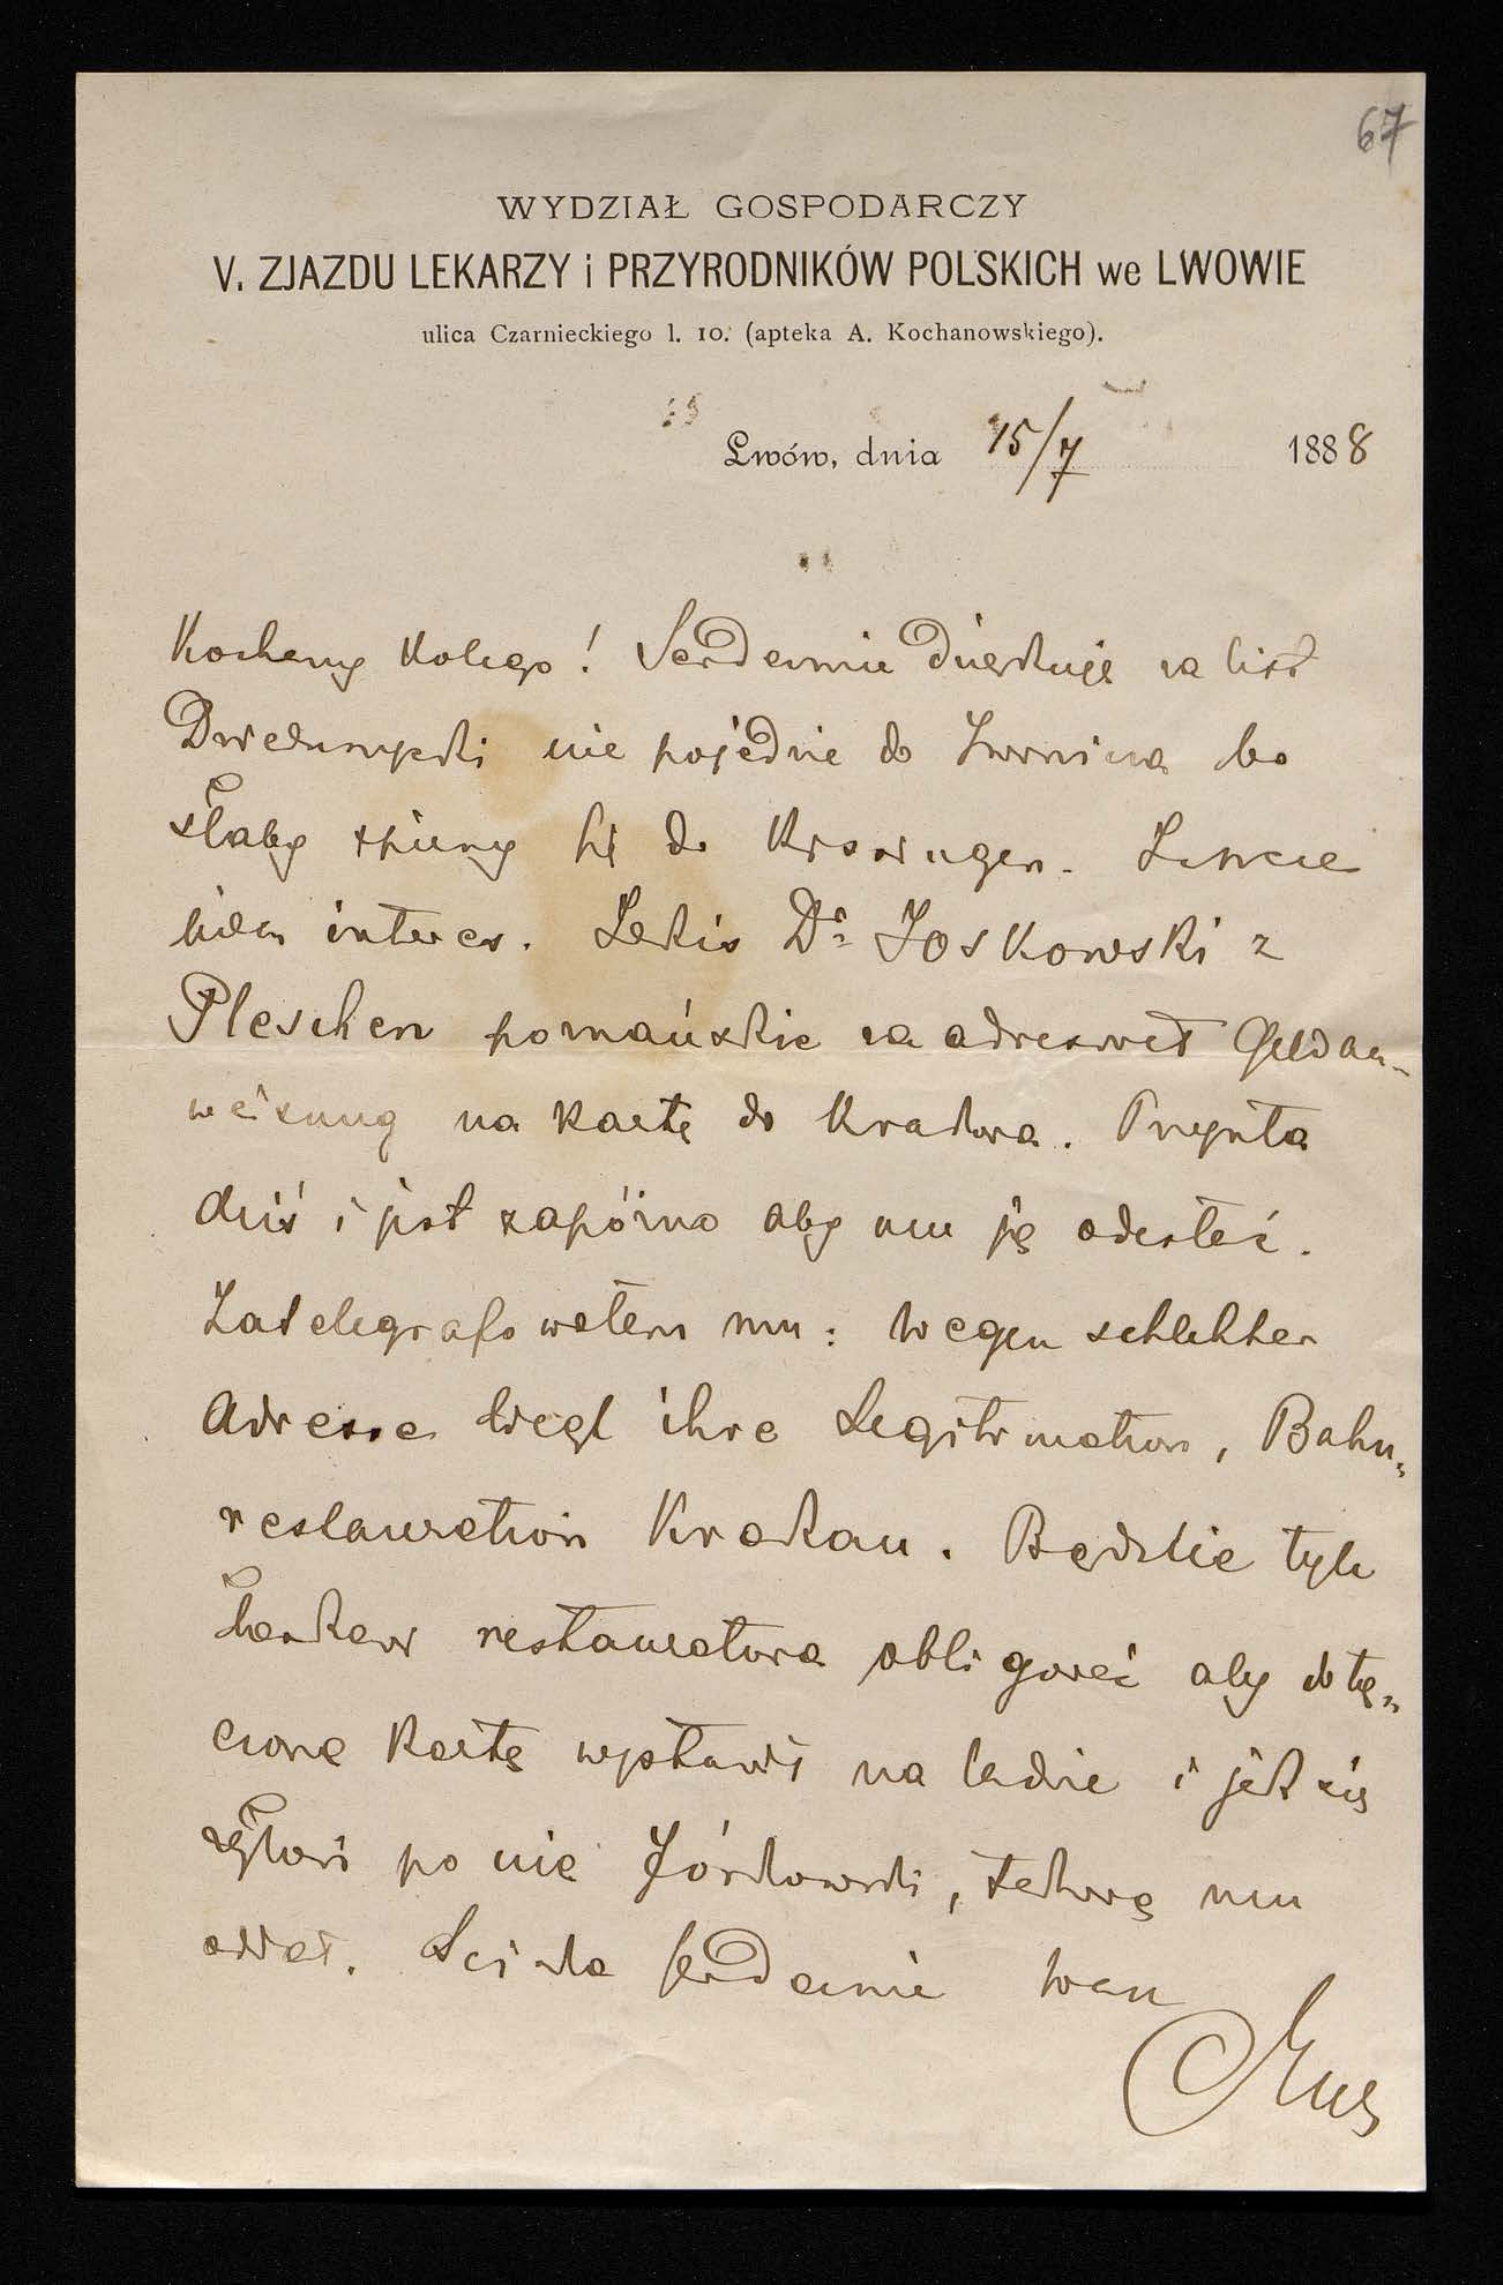 67
WYDZIAŁ GOSPODARCZY
V. ZJAZDU LEKARZY i PRZYRODNIKÓW POLSKICH we LWOWIE
ulica Czarnieckiego l. 10. (apteka A. Kochanowskiego).
Lwów, dnia 15/7 1888
Kochany Kolego! Serdecznie dziękuję za list
nie pojedzie do Iwonicza bo
słaby śpieszy się do
interes. Jakiś Dr. Joskowski z
Pleschen poznańskie zaadresował Geldan-
weisung na kartę do Krakowa. Przyszła
dziś i jest zapóźno aby mu ję odesłać.
Zatelegrafowałem mu: Wegen schlechter
Adresse liegt ihre Legitimation, Bahn-
restauration Krakau. Bądźcie tyle
łaskaw restauratora obligować aby dołą-
czoną kartę wystawił na ladzie i jak się
zgłosi po nię Jóskowski, takową mu
oddał. Ściska serdecznie Wasz